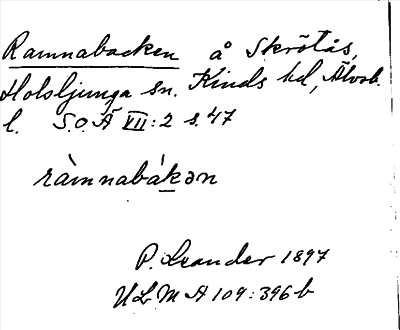 Ramnabacken å Skrôtås,
Holsljunga sn. Kinds hd, Älvsb.
l. S.O.Ä VII:2 s. 47
ràmnabákən
P. Leander 1897
ULMA 109:396 b